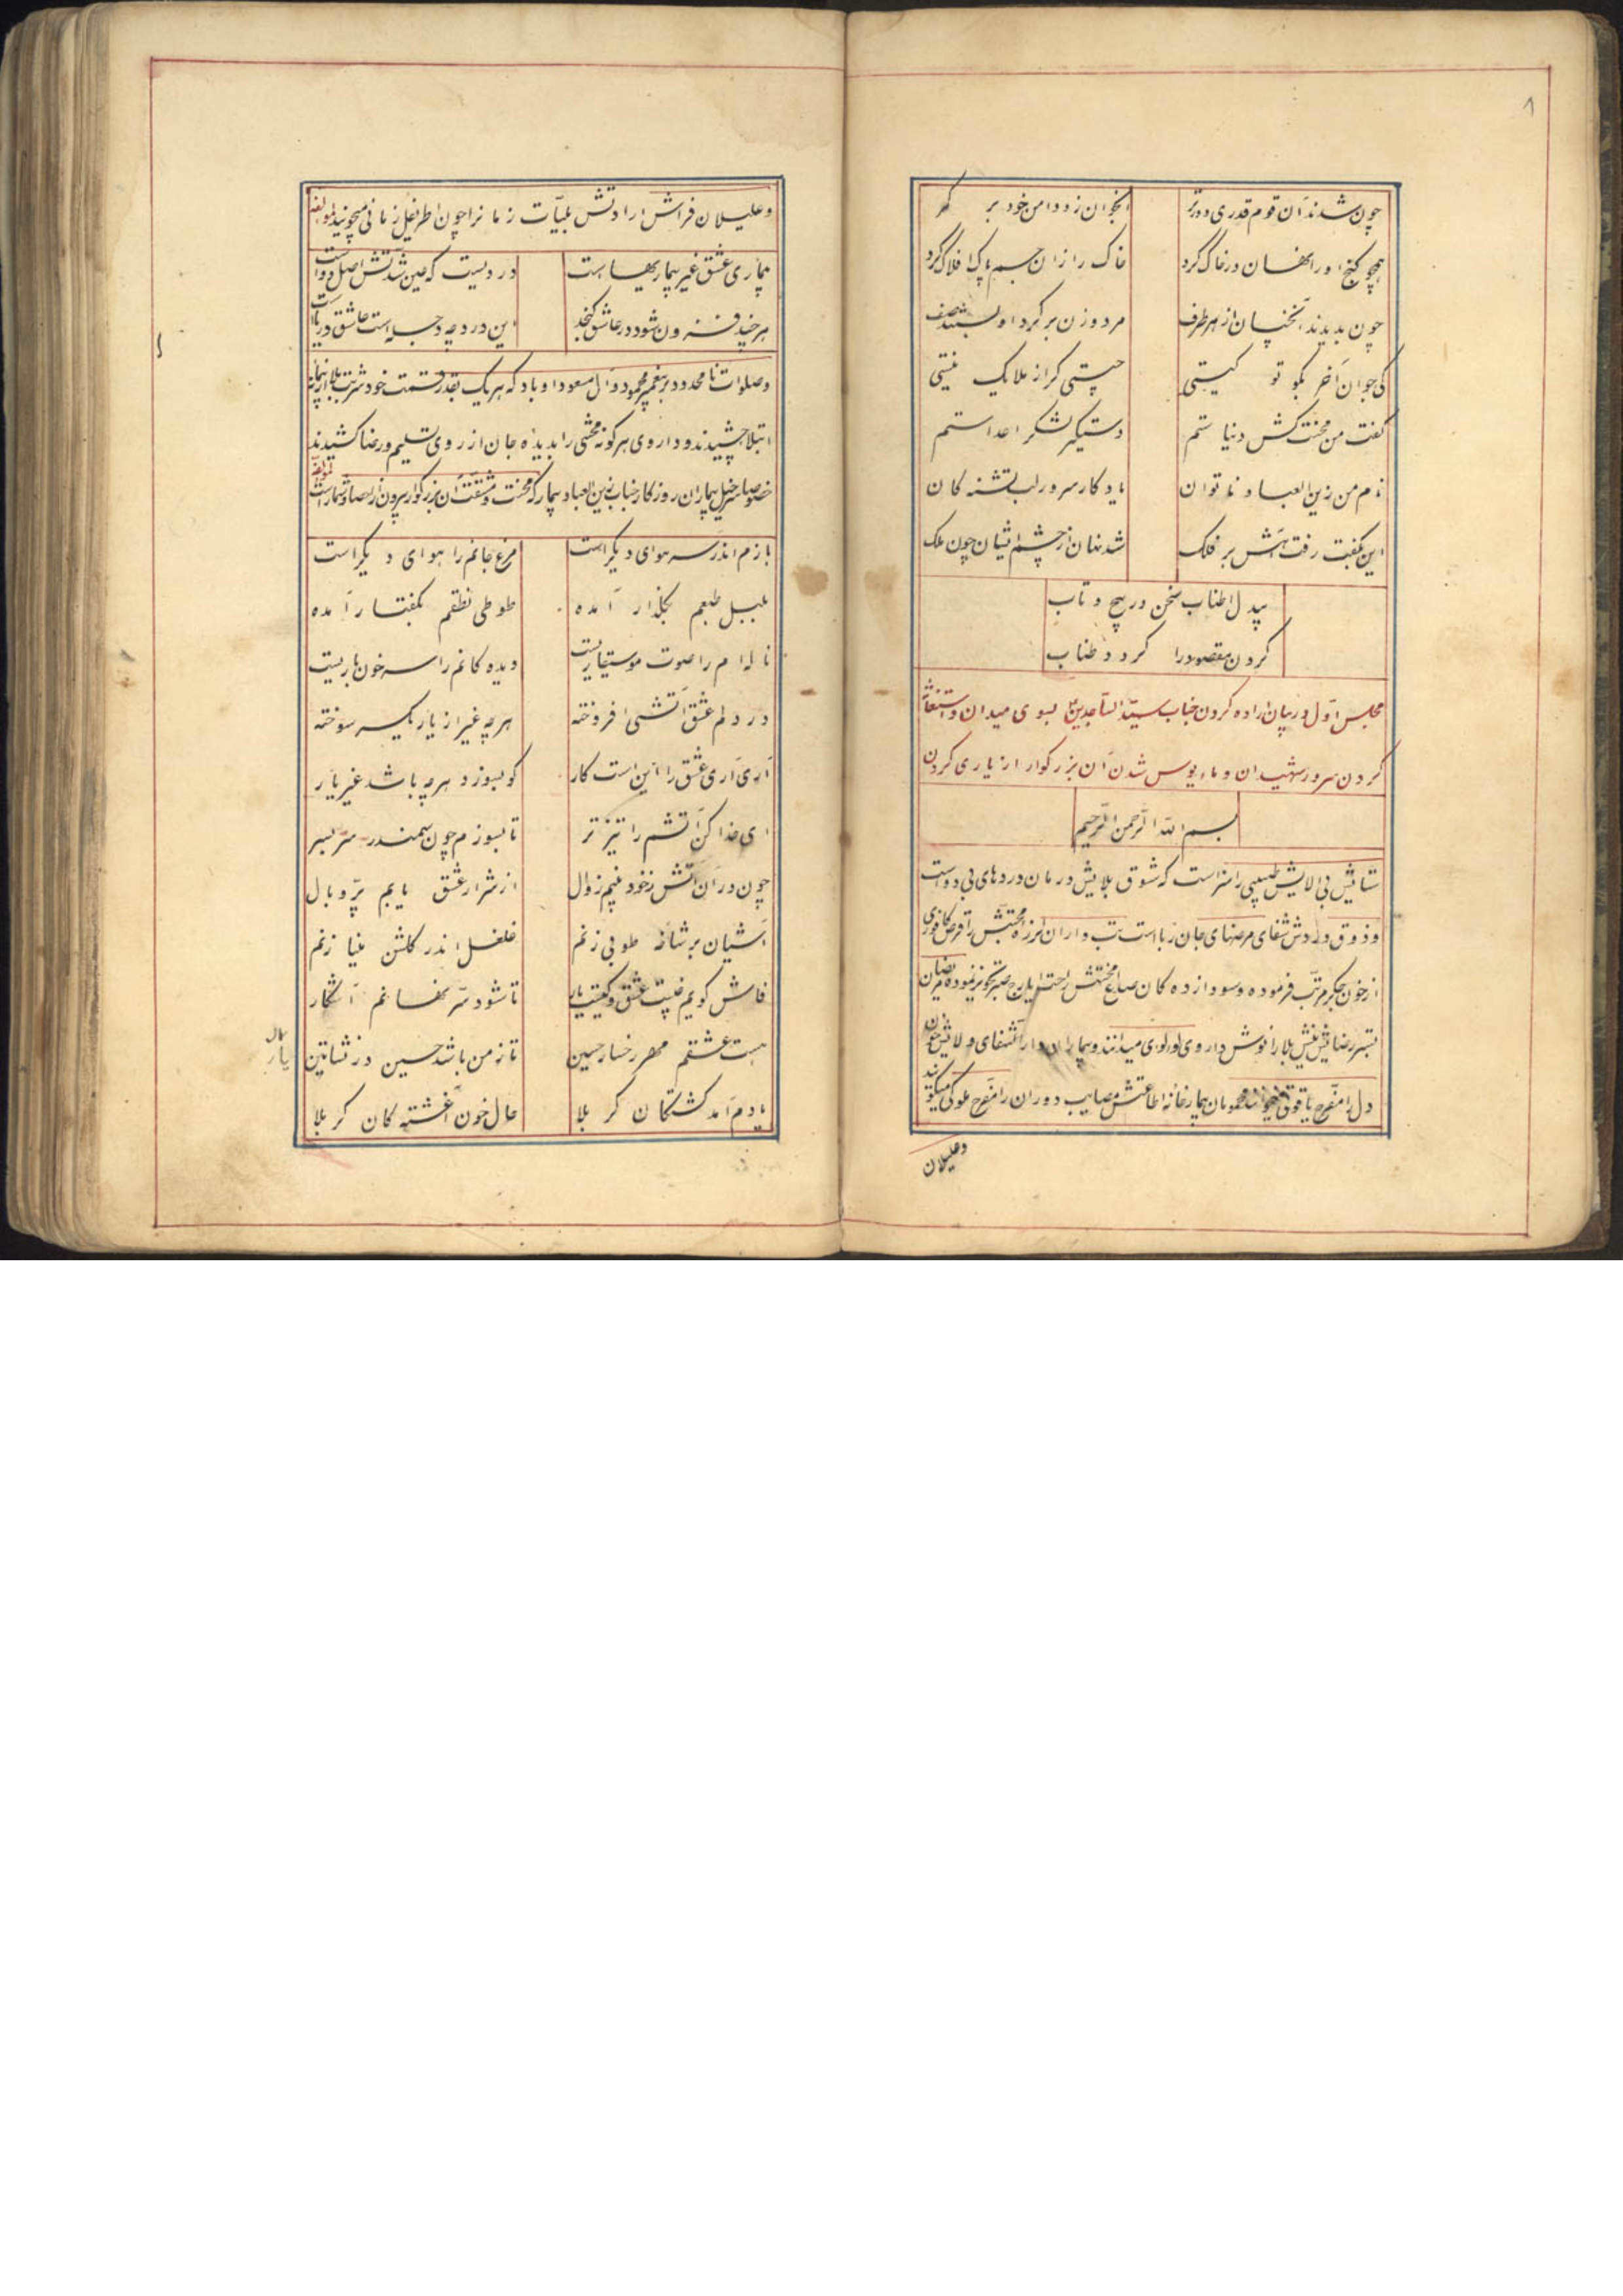 ۸
چون شدند آن قوم قدری دورتر آنجوان زود دامن خود بر کمر
همچو گنج او را نهان در خاک کرد خاک را زان جسم پاک افلاک کرد
چون بدیدند آنچنان از هر طرف مرد و زن بر گرد او بستند صف
کی جوان آخر بگو تو کیستی چیستی گر از ملایک نیستی
گفت من محنت کش دنیاستم دستگیر لشکر اعداستم
نام من زین العباد ناتوان یادگار سرور لب تشنه کان
این بگفت و رفت آهش بر فلک شد نهان از چشم ایشان چون ملک
بیدل اطناب سخن در پیچ و تاب
گردن مقصود را گردد طناب
مجلس اول در بیان اراده کردن جناب سید الساجدین بسوی میدان و استغاثه
کردن سرور شهیدان و ماءیوس شدن آن بزرگوار از یاری کردن
بسم الله الرحمن الرحیم
ستایش بی الایش طبیبی را سزاست که شوق بلایش درمان دردهای بی دواست
وذوق دردش شفای مرضهای جان رباست تب داران لرزه محبتش را قرص کافوری
از خون جگر مرتب فرموده و سودازده کان صداع محنتش را حب ایارج صبر تجویز نموده مریضان
بستر رضایش نیش بلا را نوش داروی لولوی میدانند و بیماران دارالشفای ولایش خون
دل را مفرح یاقوتی میخوانند محمومان بیمارخانه اطاعتش مصایب دوران را مفرح ملوکی میگویند
وعلیلان
وعلیلان فراش ارادتش بلیات زمانرا چون اطریفل زمانی میجویند لمؤلفه
بیماری عشق غیر بیماریهاست دردیست که عین شدتش اصل دواست
هرچند فزون شود در عاشق گنجد این درد چه دجله است عاشق دریاست
وصلوات نامحدود بر پیغمبر محمود و آل مسعود او باد که هریک بقدر قسمت خود شربت بلا از پیمانه
ابتلا چشیدند و داروی هرگونه محنتی را بدیده جان از روی تسلیم و رضا کشیدند
خصوصا سرخیل بیماران روزگار جناب زین العباد بیمار که محنت و مشقت آن بزرگوار بیرون از احصا و شمار است لمؤلفه
بازم اندر سر هوای دیگر است مرغ جانم را هوای دیگر است
بلبل طبعم بگلزار آمده طوطی نطقم بگفتار آمده
ناله ام را صوت موسیقاریست دیده کانم را سر خون باریست
در دلم عشق آتشی افروخته هرچه غیر از یار یکسر سوخته
آری آری عشق را این است کار کو بسوزد هرچه باشد غیر یار
ای خدا کن آتشم را تیزتر تا بسوزم چون سمندر سر بسر
چون در آن آتش ز خود بینم زوال از شرار عشق یابم پر و بال
آشیان بر شاخه طوبی زنم غلغل اندر گلشن مینا زنم
فاش گویم چیست عشق و کیست یار تا شود سر نهانم آشکار
هست عشقم مهر رخسار حسین تا ز من باشد حسین در نشأتین
یادم آمد کشتگان کربلا حال خون آغشته کان کربلا
یار